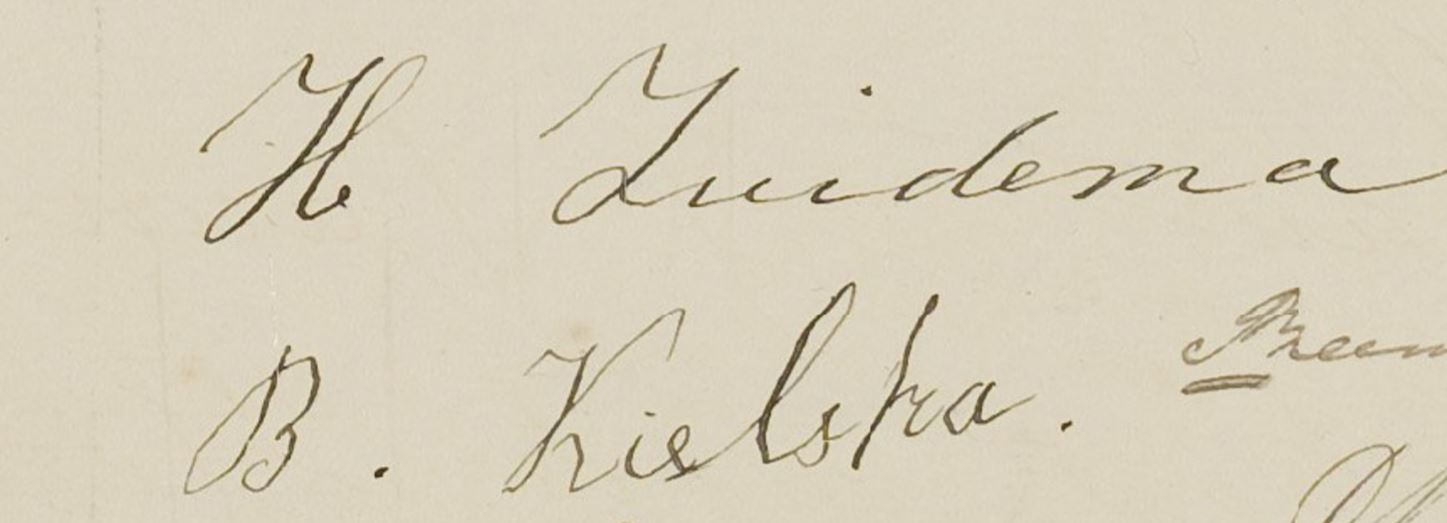 H Zuidema
B. Kielstra.